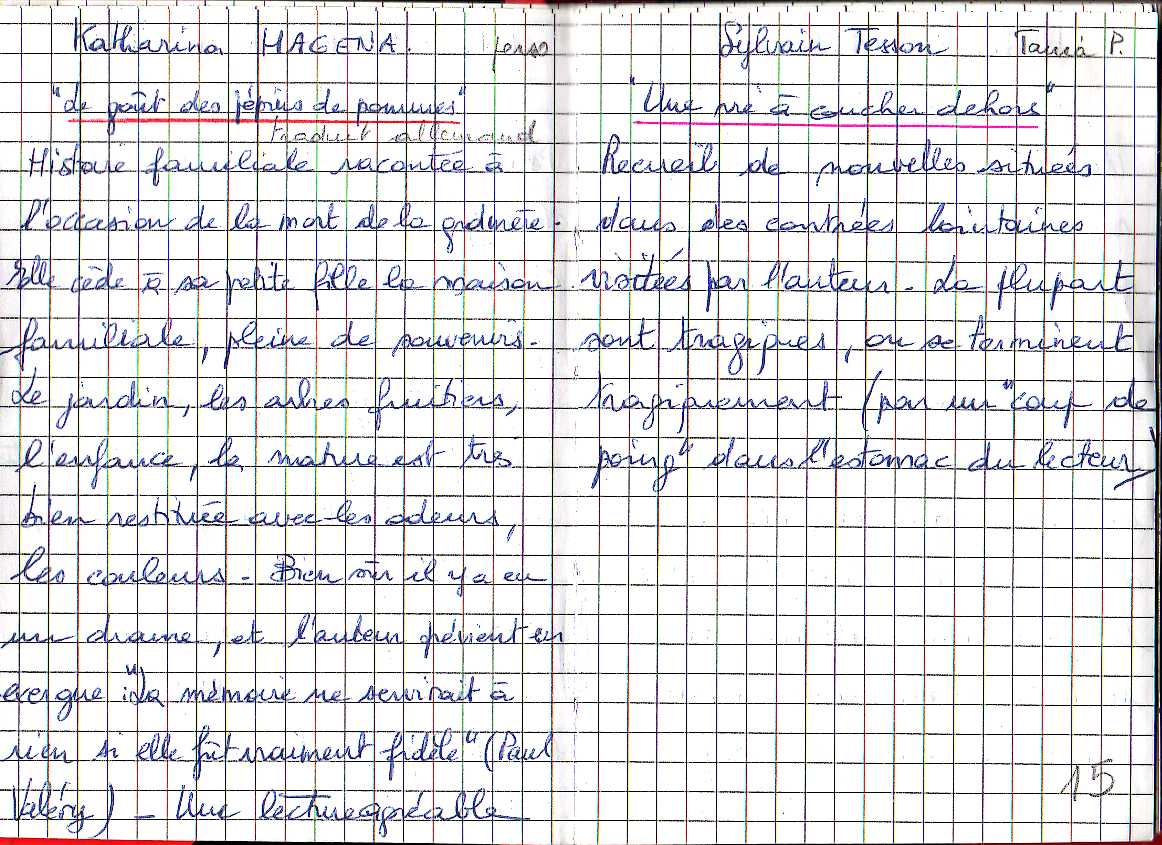 Katharina HAGENA. perso
"Le goût des pépins de pommes"
traduit allemand
Histoire familiale racontée à
l'occasion de la mort de la grdmère.
Elle cède à sa petite fille la maison
familiale, pleine de souvenirs.
Le jardin, les arbres fruitiers,
l'enfance, la nature est très
bien restituée avec les odeurs,
les couleurs - Bien sûr il y a eu
un drame, et l'auteur prévient en
exergue : "La mémoire ne servirait à
rien si elle fût vraiment fidèle" (Paul
Valéry) - Une lecture agréable
Sylvain Tesson Tania P.
"Une vie à coucher dehors"
Recueil de nouvelles situées
dans des contrées lointaines
visitées par l'auteur - La plupart
sont tragiques, ou se terminent
tragiquement (par un "coup de
poing" dans l'estomac du lecteur)
15